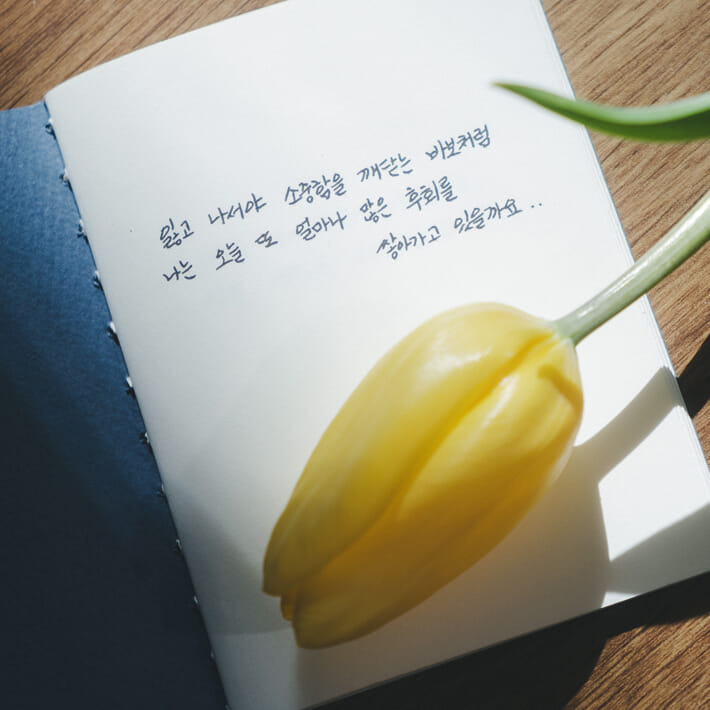 잃고 나서야 소중함을 깨닫는 바보처럼
나는 오늘 또 얼마나 많은 후회를
쌓아가고 있을까요..